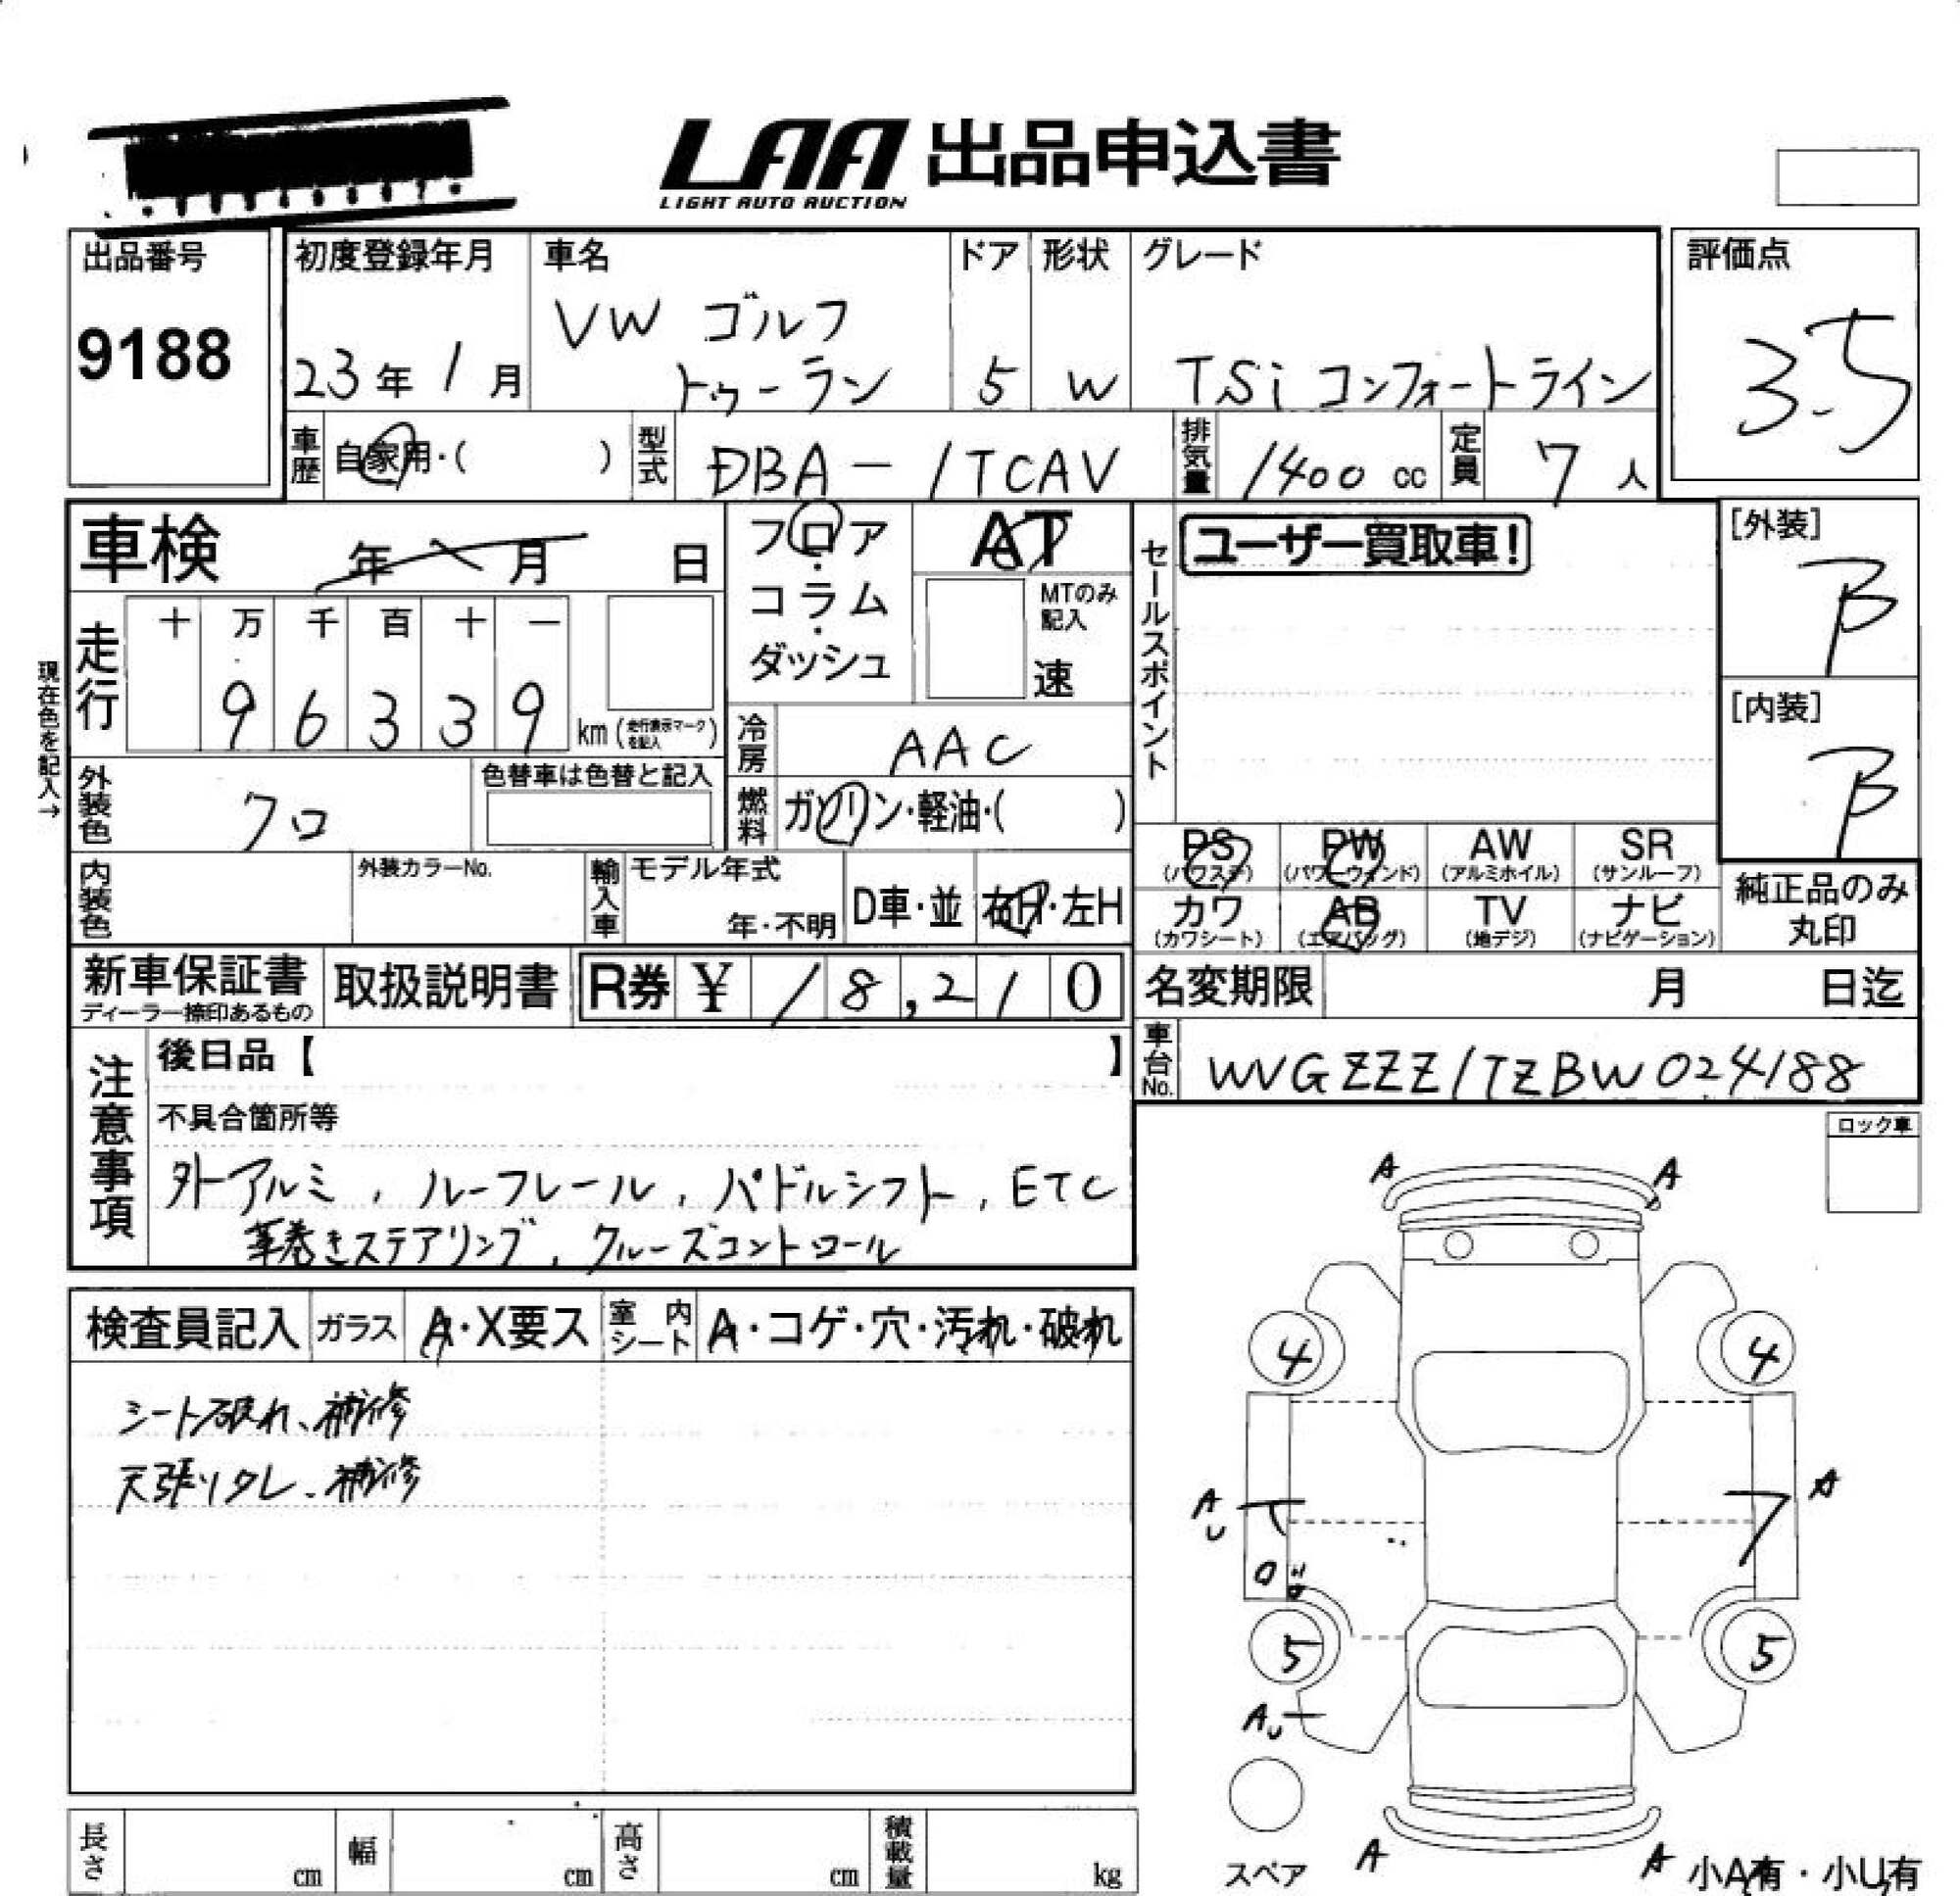 LAA 出品申込書
LIGHT AUTO AUCTION
出品番号
9188
初度登録年月
23年1月
車名
VW ゴルフ
トゥーラン
ドア
5
形状
W
グレード
TSi コンフォートライン
評価点
3.5
車歴
自家用・( )
型式
DBA-1TCAV
排気量
1400 cc
定員
7人
車検 年 月 日
フロア・コラム・ダッシュ
AT
MTのみ記入
速
セールスポイント
ユーザー買取車!
[外装]
B
[内装]
B
現在色を記入→
走行
十 万 千 百 十 一
9 6 3 3 9 km (走行表示マークを記入)
冷房
AAC
外装色
クロ
色替車は色替と記入
燃料
ガソリン・軽油・( )
PS (パワステ)
PW (パワーウィンド)
AW (アルミホイル)
SR (サンルーフ)
カワ (カワシート)
AB (エアバッグ)
TV (地デジ)
ナビ (ナビゲーション)
純正品のみ
丸印
内装色
外装カラーNo.
輸入車
モデル年式
年・不明
D車・並
右H・左H
新車保証書
ディーラー捺印あるもの
取扱説明書
R券 ¥ 18,210
名変期限 月 日迄
車台No.
WVGZZZ1TZBW024188
注意事項
後日品【 】
不具合箇所等
外アルミ, ルーフレール, パドルシフト, ETC
革巻きステアリング, クルーズコントロール
ロック車
検査員記入
ガラス
A・X要ス
室内シート
A・コゲ・穴・汚れ・破れ
シート破れ、補修
天張りタレ、補修
A A
4 4
A U
A
5 5
AU
スペア
A A
小A有・小U有
長さ cm
幅 cm
高さ cm
積載量 kg